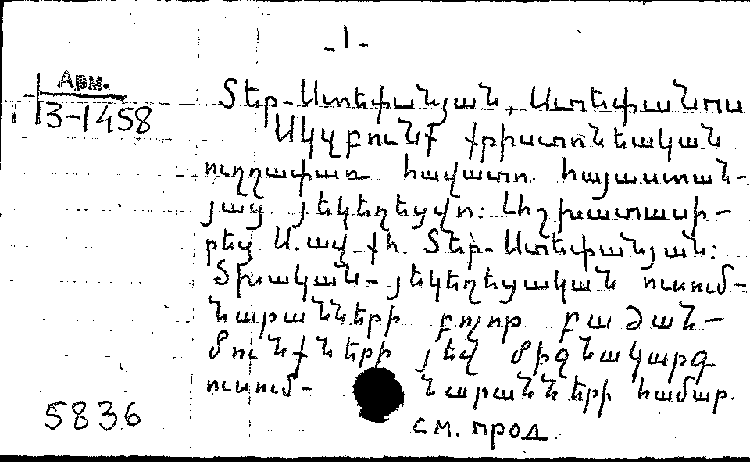 -1-
Арм.
3-1458
Տեր-Ստեփանյան, Ստեփանոս
Սկզբունք քրիստոնեական
ուղղափառ հավատո հայաստան-
յայց յեկեղեցվո: Աշխատասի-
րեց Ս. ավ. քհ. Տեր-Ստեփանյան:
Տխական-յեկեղեցական ուսում-
նարանների բոլոր բաժան-
մունքների յեվ միջնակարգ
ուսում- նարանների համար.
5836
см. прод.